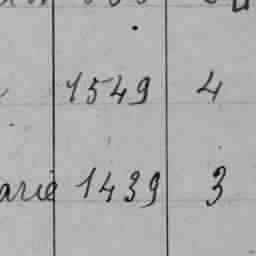 1549 4
arie 1439 3